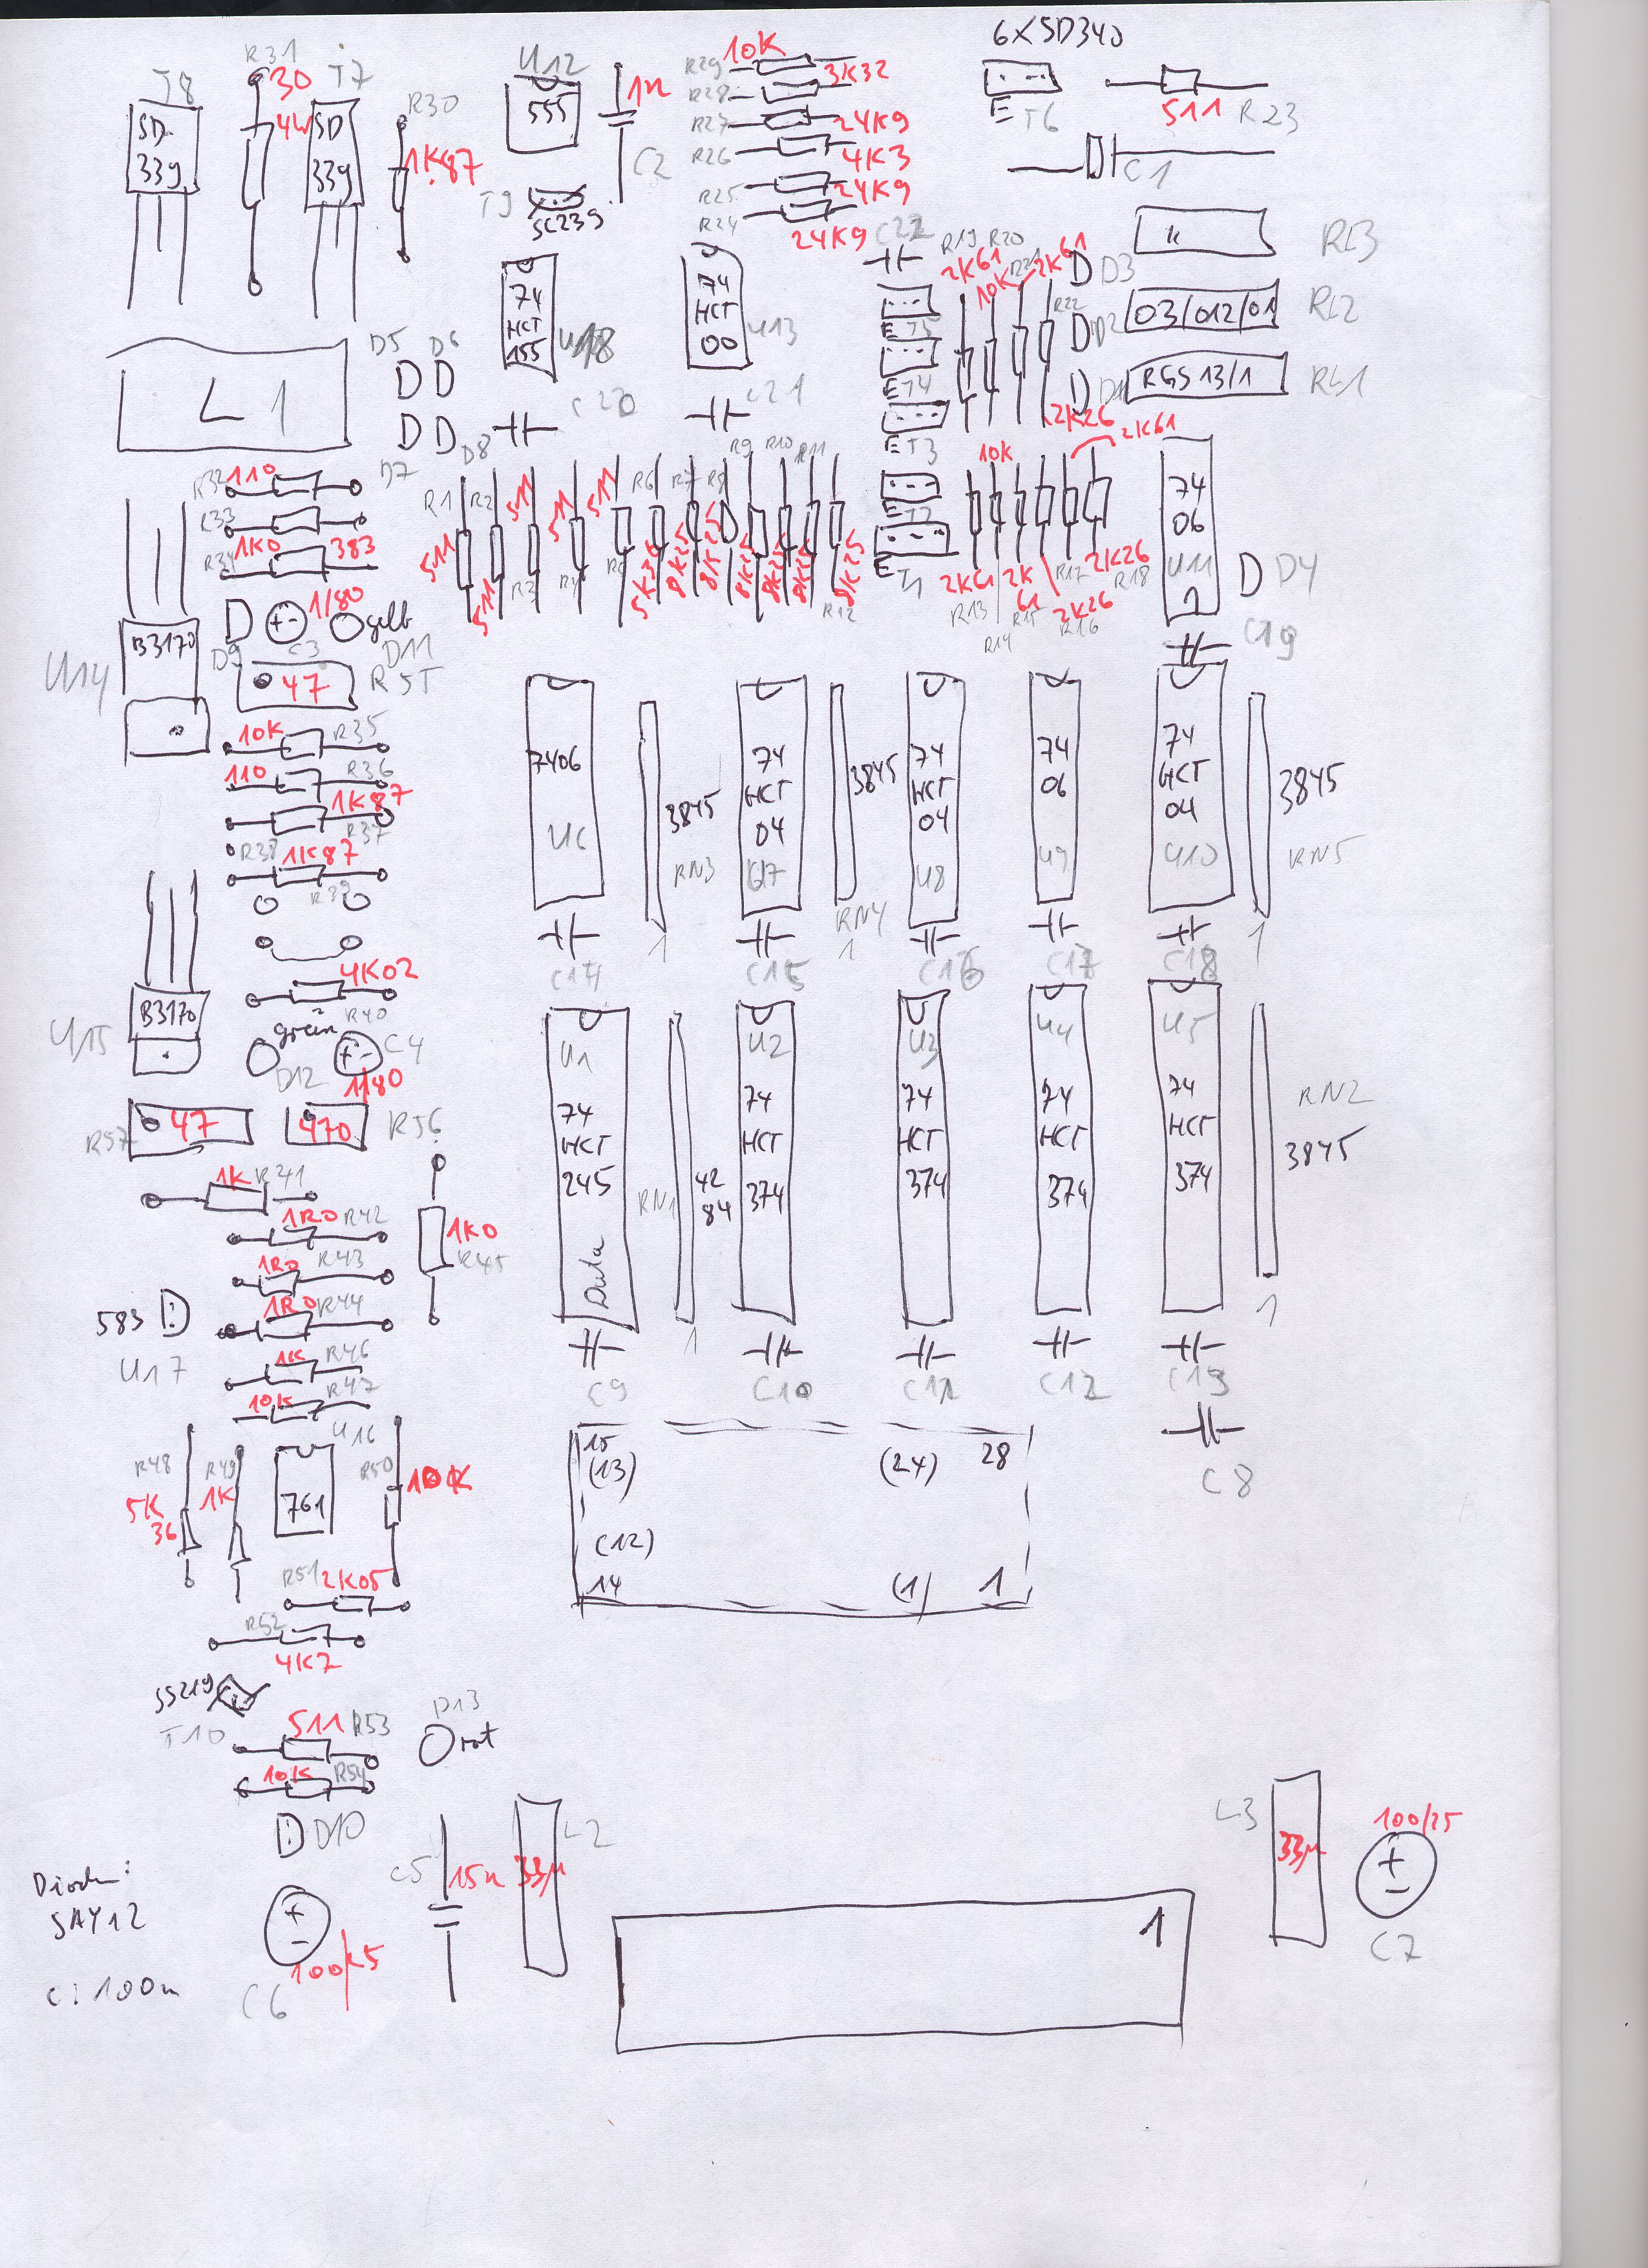 6XSD340
T8
R31
30
4W
T7
SD
339
SD
339
R30
1K87
U12
555
1n
C2
T9
SC239
R29
10K
3K32
R28
R27
24K9
R26
4K3
R25
24K9
R24
24K9
E T6
511
R23
C1
C22
R19
R20
2K61
10K
2K61
R22
D3
D2
D1
11
RL3
03/012/01
RL2
RGS 13/1
RL1
74
HCT
155
U18
74
HCT
00
U13
E T5
E T4
E T3
T2
E T1
L1
D5
D6
D8
D7
C20
C21
2K26
2K61
10K
R32
110
R33
R34
1K0
383
R1
R2
R3
R4
511
511
511
511
511
R6
R7
R8
R9
R10
R11
R12
5K36
8K25
8K25
8K25
8K25
8K25
8K25
2K61
R13
R14
2K
61
R15
2K26
R16
R17
2K26
R18
74
06
U11
D4
C19
U14
B3170
D9
1/80
C3
gelb
D11
47
R55
10K
R35
110
R36
1K87
R37
R38
1K87
R39
7406
U6
3845
RN3
1
74
HCT
04
U7
3845
RN4
1
74
HCT
04
U8
74
06
U9
74
HCT
04
U10
3845
RN5
1
C14
C15
C16
C17
C18
4K02
R40
U15
B3170
grün
D12
C4
1/80
R57
47
470
R56
U1
74
HCT
245
Data
RN1
42
84
1
U2
74
HCT
374
U3
74
HCT
374
U4
74
HCT
374
U5
74
HCT
374
RN2
3845
1
1K
R41
1R0
R42
1R0
R43
1R0
R44
1K0
R45
583
U17
1K
R46
10K
R47
C9
C10
C11
C12
C13
C8
U16
R48
5K
36
R49
1K
761
R50
10K
15
(13)
(24)
28
(12)
14
(1)
1
R51
2K05
R52
4K7
SS219
T10
511
R53
10K
R54
D13
rot
D10
C5
15n
33µ
L2
L3
33µ
100/25
C7
Dioden:
SAY12
C: 100n
C6
100/25
1